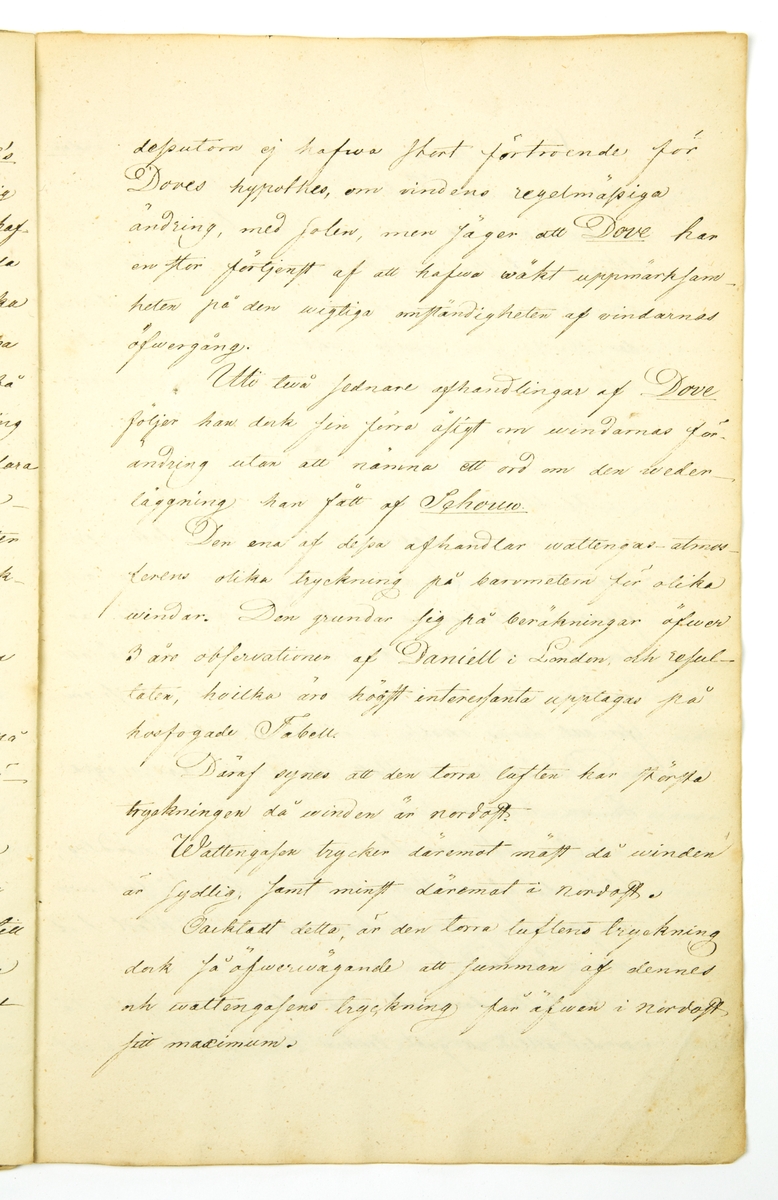 dessutom ej hafwa stort förtroende för
Doves hypothes, om vindens regelmässiga
ändring, med solen, men säger att Dove har
en stor förtjenst af att hafwa wäkt uppmärksam-
heten på den wigtiga omständigheten af vindarnas
öfwergång.
Uti twå sednare afhandlingar af Dove
följer han dock sin förra åsigt om windarnas för-
ändring utan att nämna ett ord om den weder-
läggning han fått af Schouw.
Den ena af dessa afhandlar wattengas-atmos-
ferens olika tryckning på barometern för olika
windar. Den grundar sig på beräkningar öfwer
3 års observationer af Daniell i London, och resul-
taten, hvilka äro högst interessanta upplagas på
hosfogade Tabell.
Däraf synes att den torra luften har största
tryckningen då winden är nordost.
Wattengasen trycker däremot mäst då winden
är sydlig, samt minst däremot i nordost.
Oacktadt detta, är den torra luftens tryckning
dock så öfwerwägande att summan af dennes
och wattengasens tryckning får äfwen i nordost
sitt maximum.
's
ig
haf-
ka
ing
lara